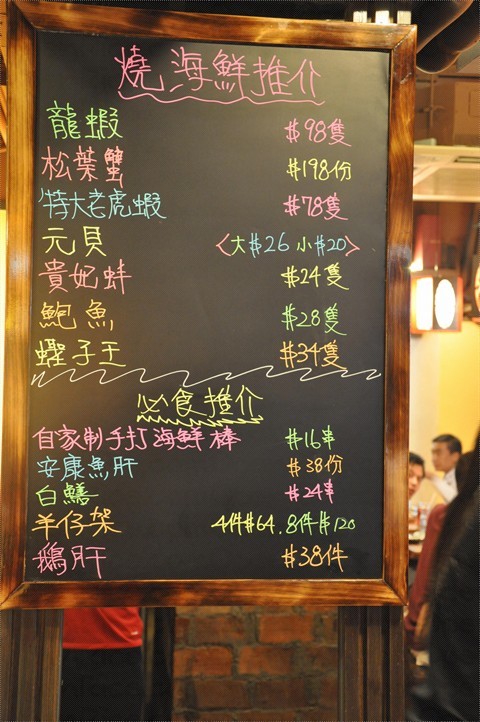 燒海鮮推介
龍蝦 $98隻
松葉蟹 $198份
特大老虎蝦 $78隻
元貝 〈大$26 小$20〉
貴妃蚌 $24隻
鮑魚 $28隻
蟶子王 $34隻
必食推介
自家制手打海鮮棒 $16串
安康魚肝 $38份
白鱔 $24串
羊仔架 4件$64.8件$120
鵝肝 $38件